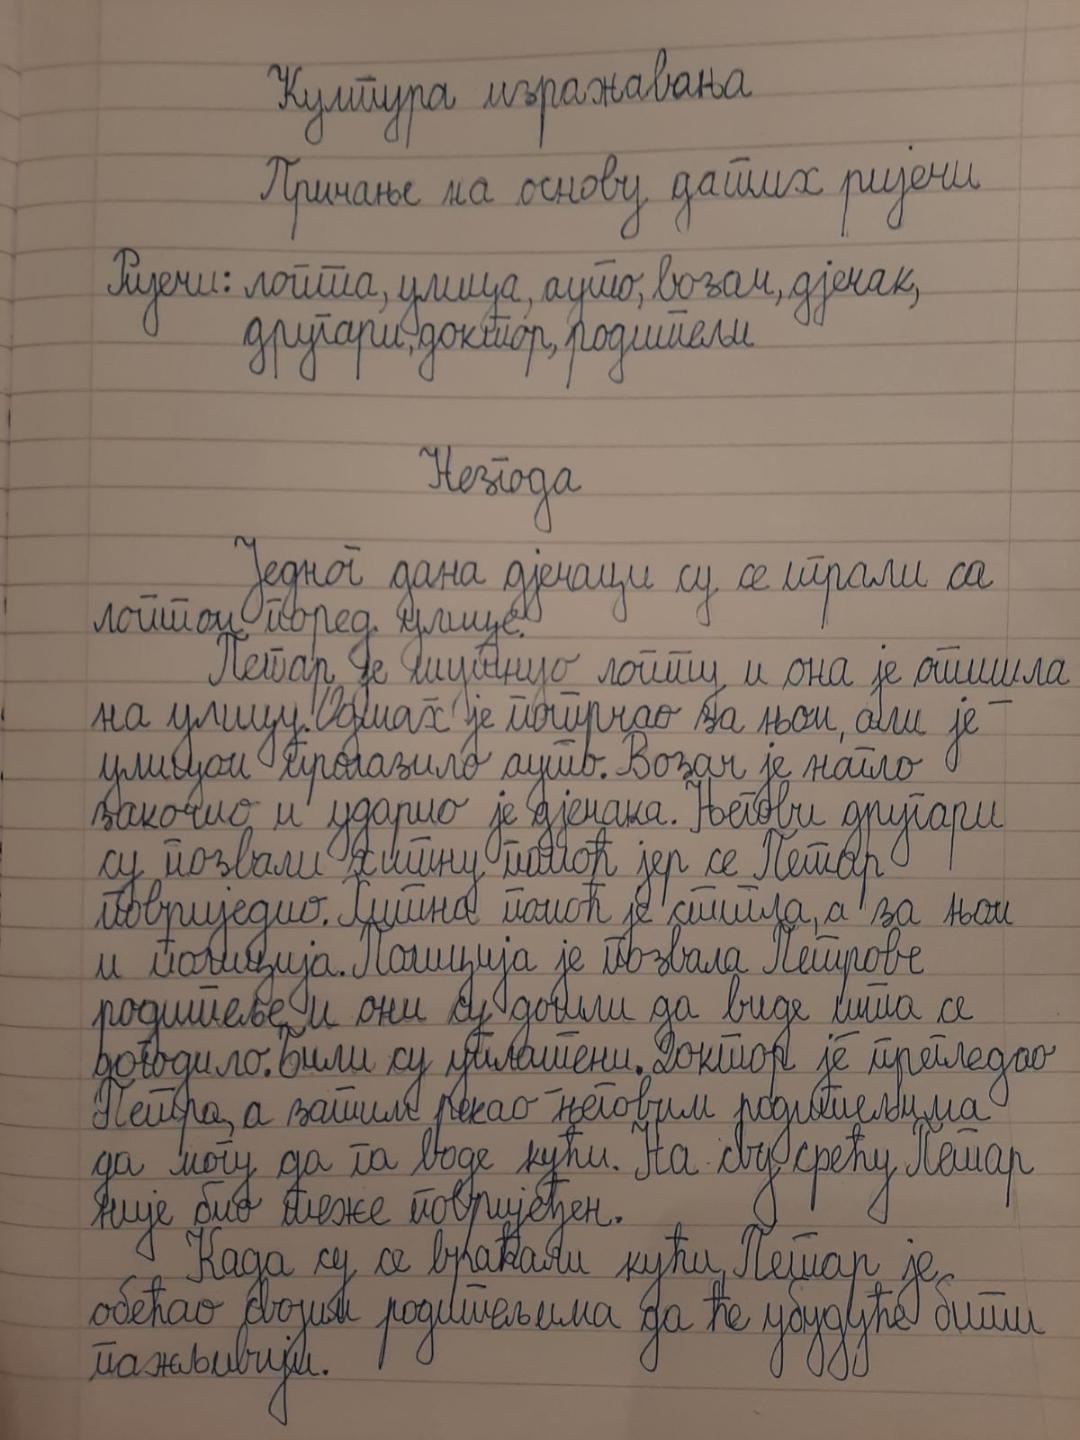 Култура изражавања
Причање на основу датих ријечи
Ријечи: лопта, улица, ауто, возач, дјечак,
другари, доктор, родитељи
Незгода
Једног дана дјечаци су се играли са
лоптом поред улице.
Петар је шутнуо лопту и она је отишла
на улицу. Одмах је потрчао за њом, али је
улицом пролазило ауто. Возач је нагло
закочио и ударио је дјечака. Његови другари
су позвали хитну помоћ јер се Петар
повриједио. Хитна помоћ је стигла, а за њом
и полиција. Полиција је позвала Петрове
родитеље и они су дошли да виде шта се
догодило. Били су уплашени. Доктор је прегледао
Петра, а затим рекао његовим родитељима
да могу да га воде кући. На сву срећу Петар
није био теже повријеђен.
Када су се враћали кући, Петар је
обећао својим родитељима да ће убудуће бити
пажљивији.